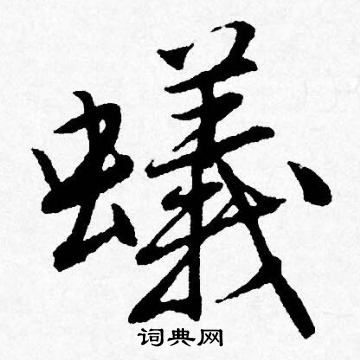 蟻
词典网